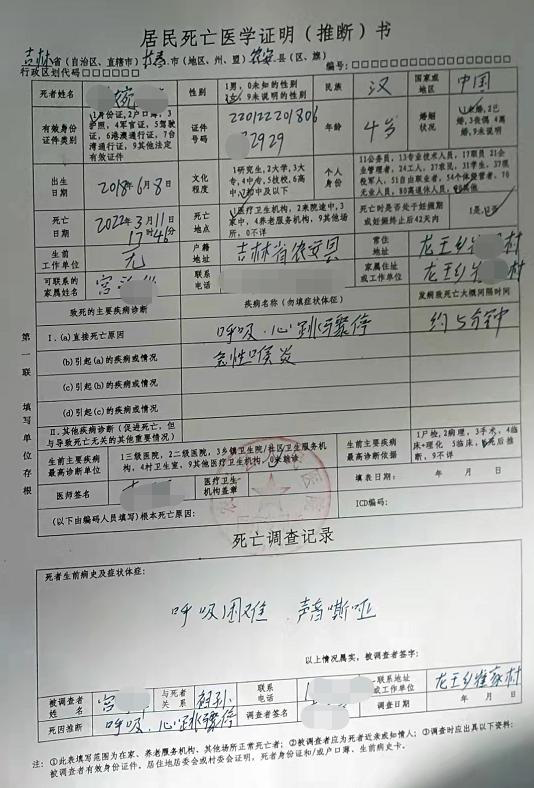 居民死亡医学证明（推断）书
吉林省（自治区、直辖市）长春市（地区、州、盟）农安县（区、旗）
行政区划代码□□□□□□ 编号：□□□□□□□□□□□□
死者姓名 性别 1男，0未知的性别 2女，9未说明的性别 民族 汉 国家或地区 中国
有效身份证件类别 1身份证，2户口簿，3护照，4军官证，5驾驶证，6港澳通行证，7台湾通行证，9其他法定有效证件 证件号码 220122201806 2929 年龄 4岁 婚姻状况 1未婚，2已婚，3丧偶 4离婚，9未说明
出生日期 2018年6月8日 文化程度 1研究生，2大学，3大专，4中专，5技校，6高中，7初中及以下 个人身份 11公务员，13专业技术人员，17职员 21企业管理者，24工人，27农民，31学生，37现役军人，51自由职业者，54个体经营者，70无业人员，80离退休人员，90其他
死亡日期 2022年3月11日 17时46分 死亡地点 1医疗卫生机构，2来院途中，3家中，4养老服务机构，9其他场所，0不详 死亡时是否处于妊娠期或妊娠终止后42天内 1是，2否
生前工作单位 无 户籍地址 吉林省农安县 常住地址 龙王乡 村
可联系的家属姓名 宫 联系电话 家属住址或工作单位 龙王乡 村
致死的主要疾病诊断 疾病名称（勿填症状体征） 发病致死亡大概间隔时间
第一联 填写单位存根
I．(a)直接死亡原因 呼吸．心跳骤停 约5分钟
(b)引起(a)的疾病或情况 急性喉炎
(c)引起(b)的疾病或情况
(d)引起(c)的疾病或情况
II．其他疾病诊断（促进死亡，但与导致死亡无关的其他重要情况）
生前主要疾病最高诊断单位 1三级医院，2二级医院，3乡镇卫生院/社区卫生服务机构，4村卫生室，9其他医疗卫生机构，0未就诊 生前主要疾病最高诊断依据 1尸检，2病理，3手术，4临床+理化 5临床，6死后推断，9不详
医师签名 医疗卫生机构盖章 填表日期： 年 月 日
（以下由编码人员填写）根本死亡原因： ICD编码：
死亡调查记录
死者生前病史及症状体征：
呼吸困难 声音嘶哑
以上情况属实，被调查者签字：
被调查者姓名 宫 与死者关系 祖孙 联系电话 联系地址或工作单位 龙王乡 家村
死因推断 呼吸．心跳骤停 调查者签名 调查日期 年 月 日
注：①此表填写范围为在家、养老服务机构、其他场所正常死亡者；②被调查者应为死者近亲或知情人；③调查时应出具以下资料：
被调查者有效身份证件，居住地居委会或村委会证明，死者身份证和/或户口簿、生前病史卡。